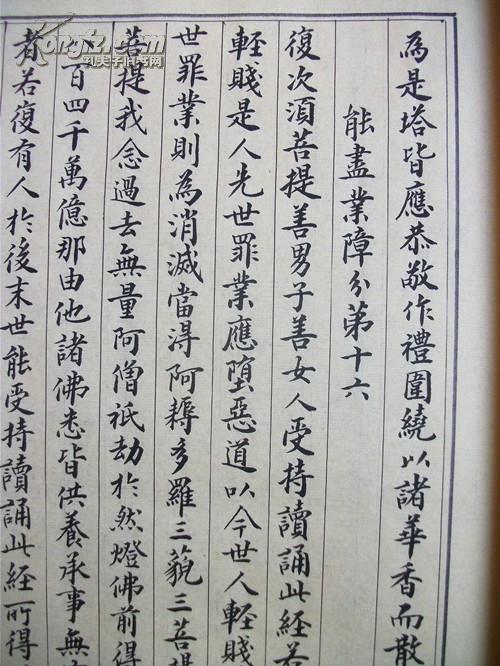 為是塔皆應恭敬作禮圍繞以諸華香而散
能盡業障分第十六
復次須菩提善男子善女人受持讀誦此經若
輕賤是人先世罪業應墮惡道以今世人輕賤
世罪業則為消滅當得阿耨多羅三藐三菩提
菩提我念過去無量阿僧祇劫於然燈佛前得
百四千萬億那由他諸佛悉皆供養承事無
者若復有人於後末世能受持讀誦此經所得
Kongfz.com
孔夫子旧书网